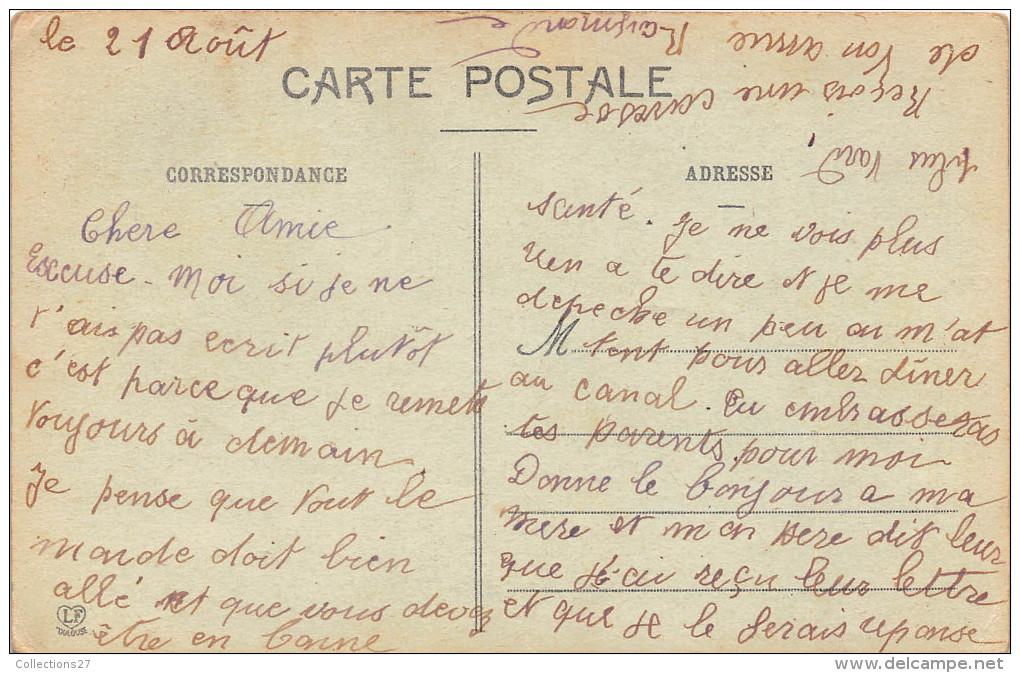 le 21 Août
CARTE POSTALE
CORRESPONDANCE
Chere Amie
Excuse-Moi si je ne
t'ais pas ecrit plutôt
c'est parceque je remets
toujours à demain.
Je pense que tout le
monde doit bien
allé et que vous devez
être en bonne
ADRESSE
santé. Je ne vois plus
rien a te dire et je me
depeche un peu ou m'at
M tent pour allez dîner
au canal. Tu embrasseras
tes parents pour moi
Donne le bonjour a ma
mere et mon pere dit leur
que j'ai reçu leur lettre
et que je le ferais reponse
plus tard
Reçois une caresse
de ton amie Raymonde
LF
TOULOUSE
Collections27
http://collections27.delcampe.net